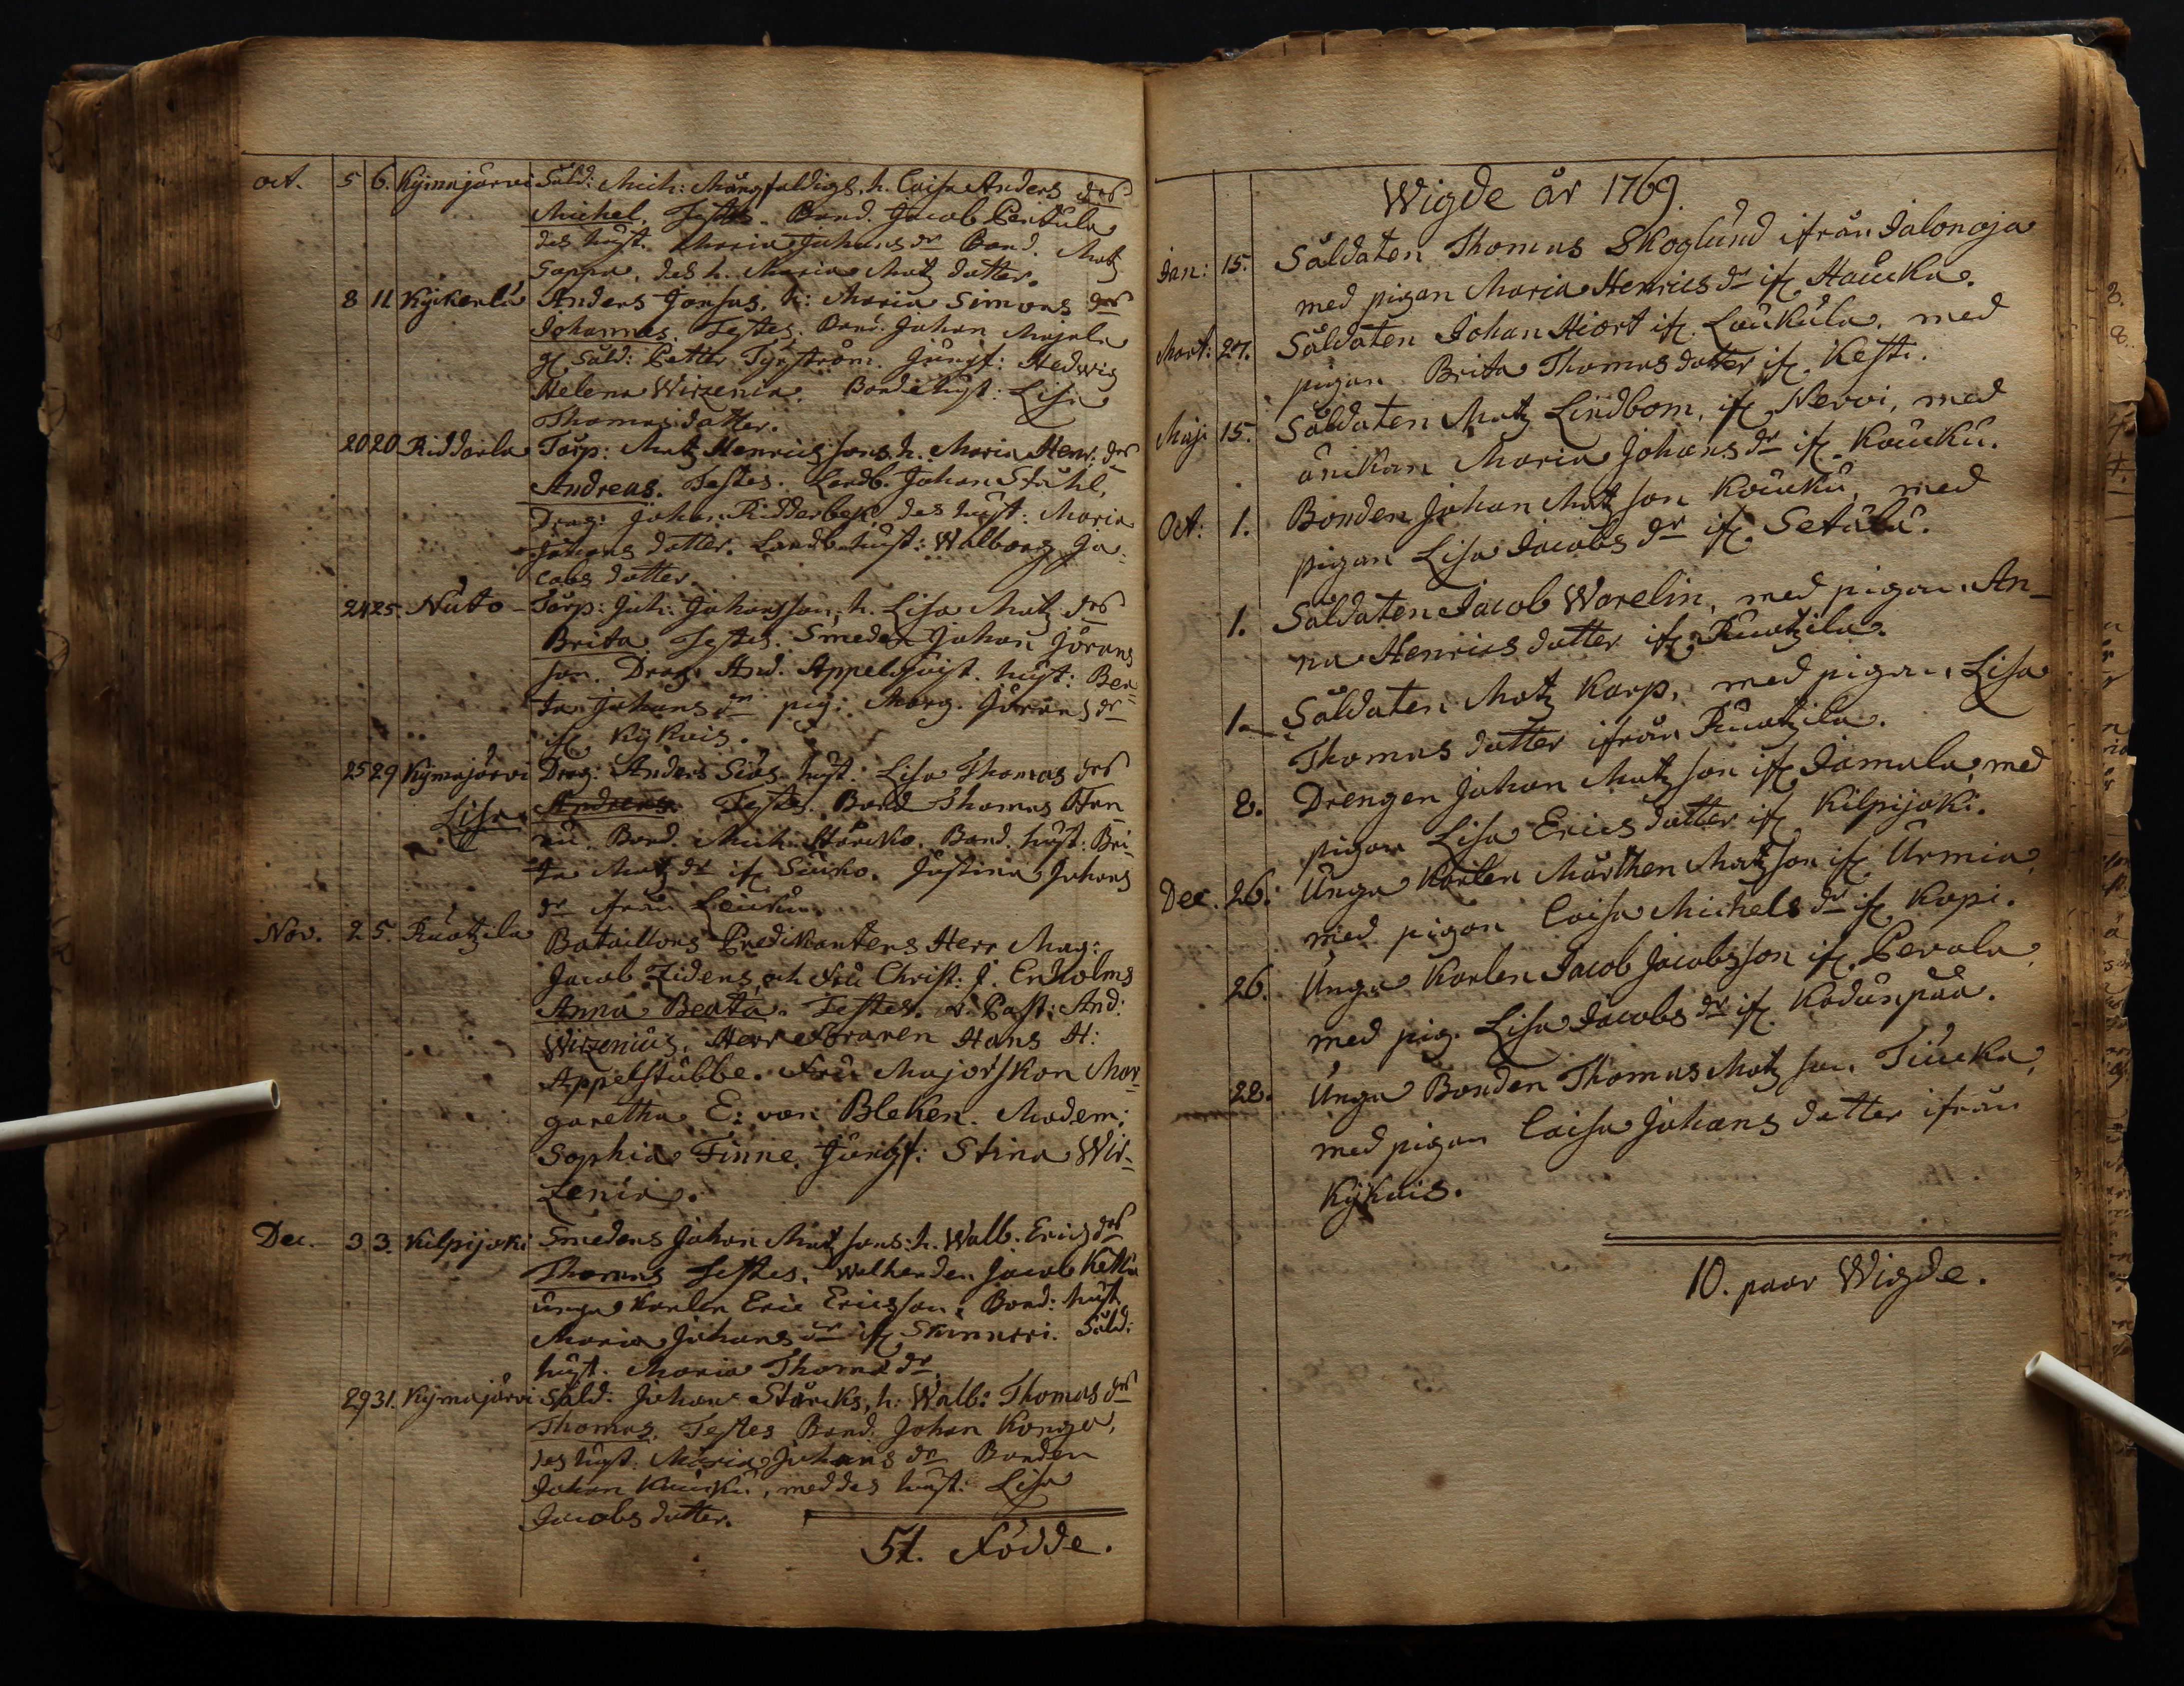 oct. 5 6. Kÿmajärvi Såld: Mich: Mångfaldigs, h. Caisa Anders drs
Michel. Testes. Bond. Jacob Pentula
des hust. Maria Johans dr Bond. Matz
Soppa, des h. Maria Matz dotter.
8 11. Kykerlä Anders Jonsas, h: Maria Simons drs
Johannes. Testes. Bond. Johan Majala
gl. Såld: Petter Tyrström. Jungf: Hedwig
Helena Wirzenia. Bonde hust: Lisa
Thomas dotter.
20 20. Riddarla Torp: Matz Henrics sons h. Maria Henr: drs
Andreas. Testes. Landb. Johan Ståhl,
Drag: Johan Ridderbeck des hust: Maria
Johans dotter. Landb. hust: Walborg Ja-
cobs dotter.
24 25. Nuto Torp: Joh: Johansson, h. Lisa Matz drs
Brita. Testes. Smeden Johan Jörans
son. Drag: And. Appelquist. hust: Ber-
ta Johans dr pig: Marg. Jörans dr
if. Kÿkois.
25 29 Kÿmajärvi Drag: Anders Siös hust: Lisa Thomas drs
Lisa. Andreas. Testes. Bond Thomas
Bond. Mich. Starcko. Bond. hust: Bri-
ta Matz dr if. Suiko. Justina Johans
dr ifrån Leuku.
Nov. 2 5. Ruotzila Bataillons Predikantens Herr Mag:
Jacob Zidens, och Fru Christ: J. Enholms
Anna Beata. Testes. v. Past: And:
Wirzenius. Herr Foraren Hans H:
Appelstubbe. Fru Majorskan Mar-
garetha E: von Bleken. Madem:
Sophia Finne. Jungf: Stina Wir-
zenia.
Dec. 3 3. Kilpijoki Smedens Johan Matz sons: h. Walb. Erics drs
Thomas Testes. Walhenden Jacob Kettu
unga Karlen Eric Ericsson. Bond: hust
Maria Johans dr if. Skinnari. Såld:
hust. Maria Thoma dr.
29 31. Kÿmajärvi Såld: Johan Starcks, h: Walb: Thomas drs
Thomas. Testes Bond: Johan Konga,
des hust: Maria Johans dr Bonden
Johan Kauku, med des hust: Lisa
Jacobs dotter.
51. Födde.
Wigde år 1769.
Jan: 15. Såldaten Thomas Skoglund ifrån Jalonoja
med pigan Maria Henrics dr if. Hauka.
Mart: 27. Såldaten Johan Hiort if. Laukula. med
pigan Brita Thomas dotter if. Kesti.
Maji 15. Såldaten Matz Lindbom, if. Nervi, med
änikan Maria Johans dr if. Kauku.
Oct: 1. Bonden Johan Matz son Kouku, med
pigan Lisa Jacobs dr if. Setälä.
1. Såldaten Jacob Warelin, med pigan An-
na Henrics dotter if. Ruotzila.
1. Såldaten Matz Karp, med pigan, Lisa
Thomas dotter ifrån Ruotzila.
8. Drengen Johan Matz son if. Jamala, med
pigan Lisa Erics dotter if. Kilpijoki.
Dec. 26. Unga Karlen Mårthen Matz son if. Urmia
med pigan Caisa Michels dr if. Kopi.
26. Unga Karlen Jacob Jacobs son if. Perala,
med pig. Lisa Jacobs dr if. Kadunpää.
28. Unga Bonden Thomas Matz son. Tiucka,
med pigan Caisa Johans dotter ifrån
Kÿkois.
10. paar Wigde.